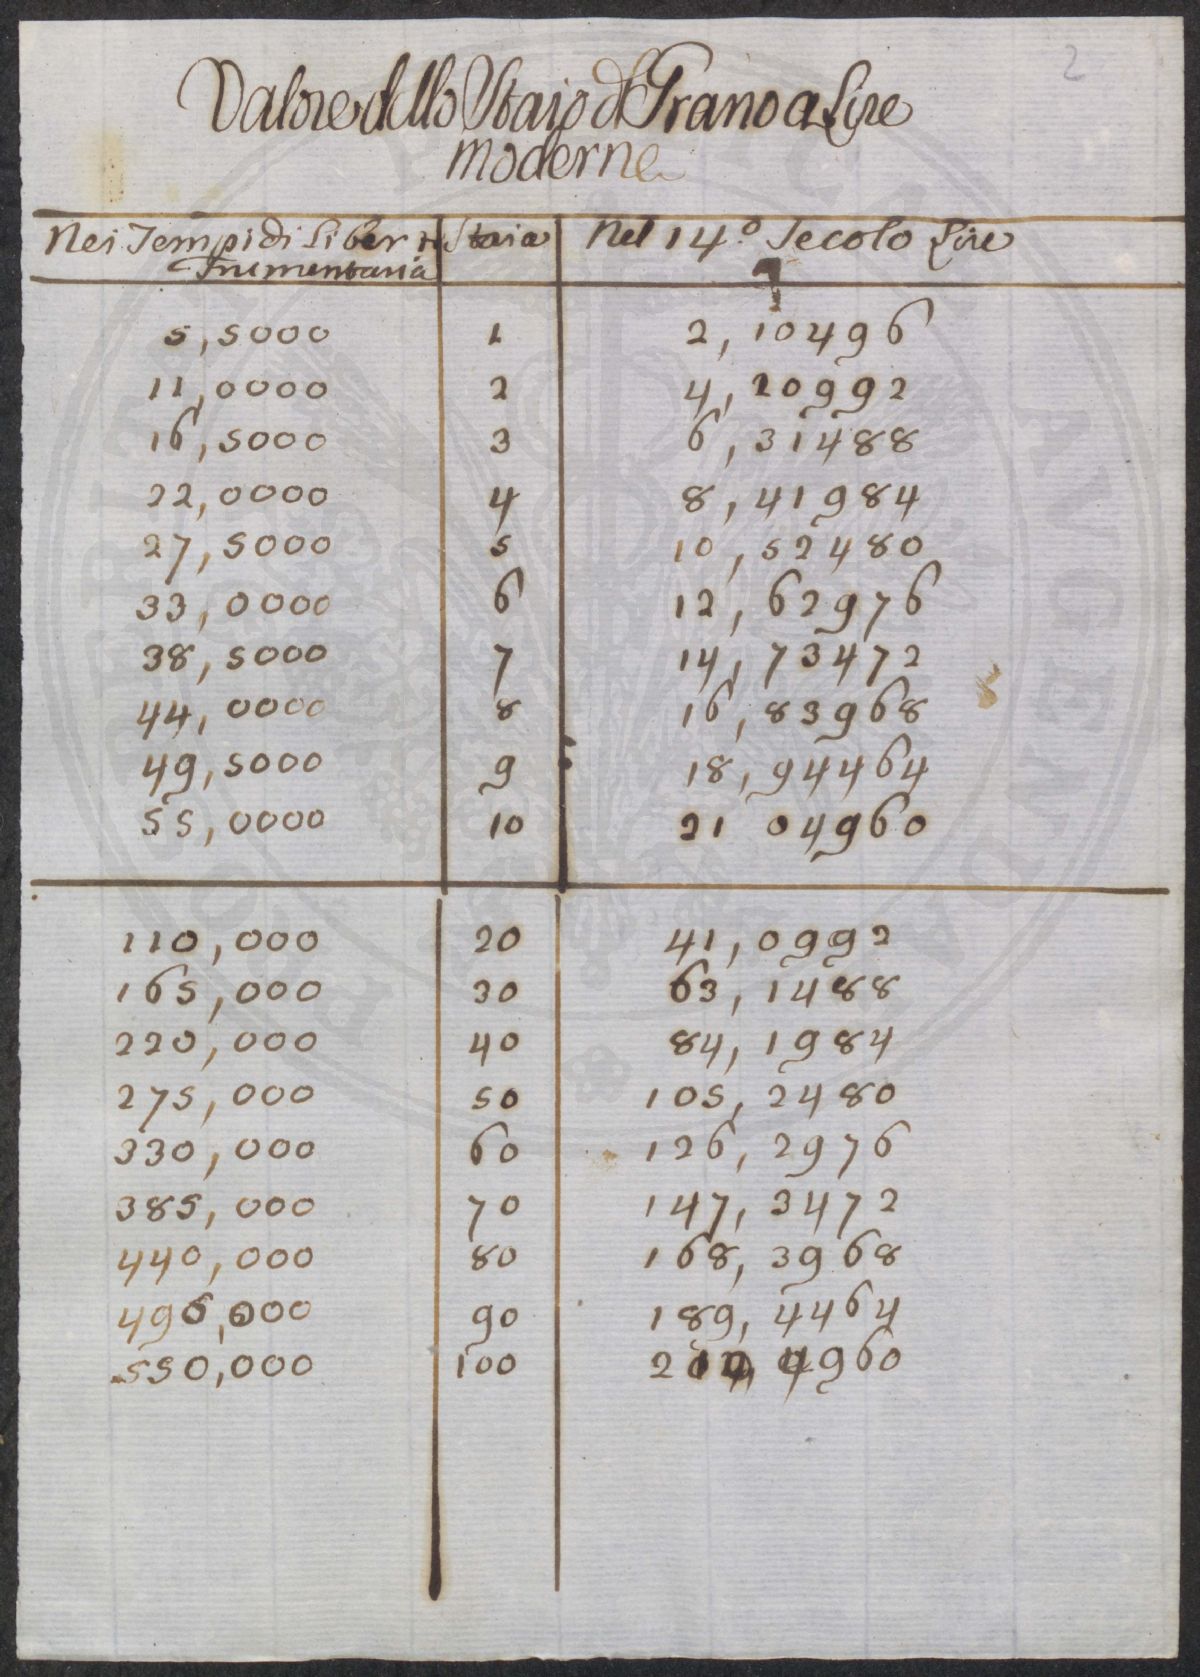 2
Valore dello Staio di Grano a Lire
moderne
Nei Tempi di Libertà Staia Nel 14.º Secolo Lire
Frumentaria
5,5000 1 2,10496
11,0000 2 4,20992
16,5000 3 6,31488
22,0000 4 8,41984
27,5000 5 10,52480
33,0000 6 12,62976
38,5000 7 14,73472
44,0000 8 16,83968
49,5000 9 18,94464
55,0000 10 21 04960
110,000 20 41,0992
165,000 30 63,1488
220,000 40 84,1984
275,000 50 105,2480
330,000 60 126,2976
385,000 70 147,3472
440,000 80 168,3968
496,000 90 189,4464
550,000 100 4960